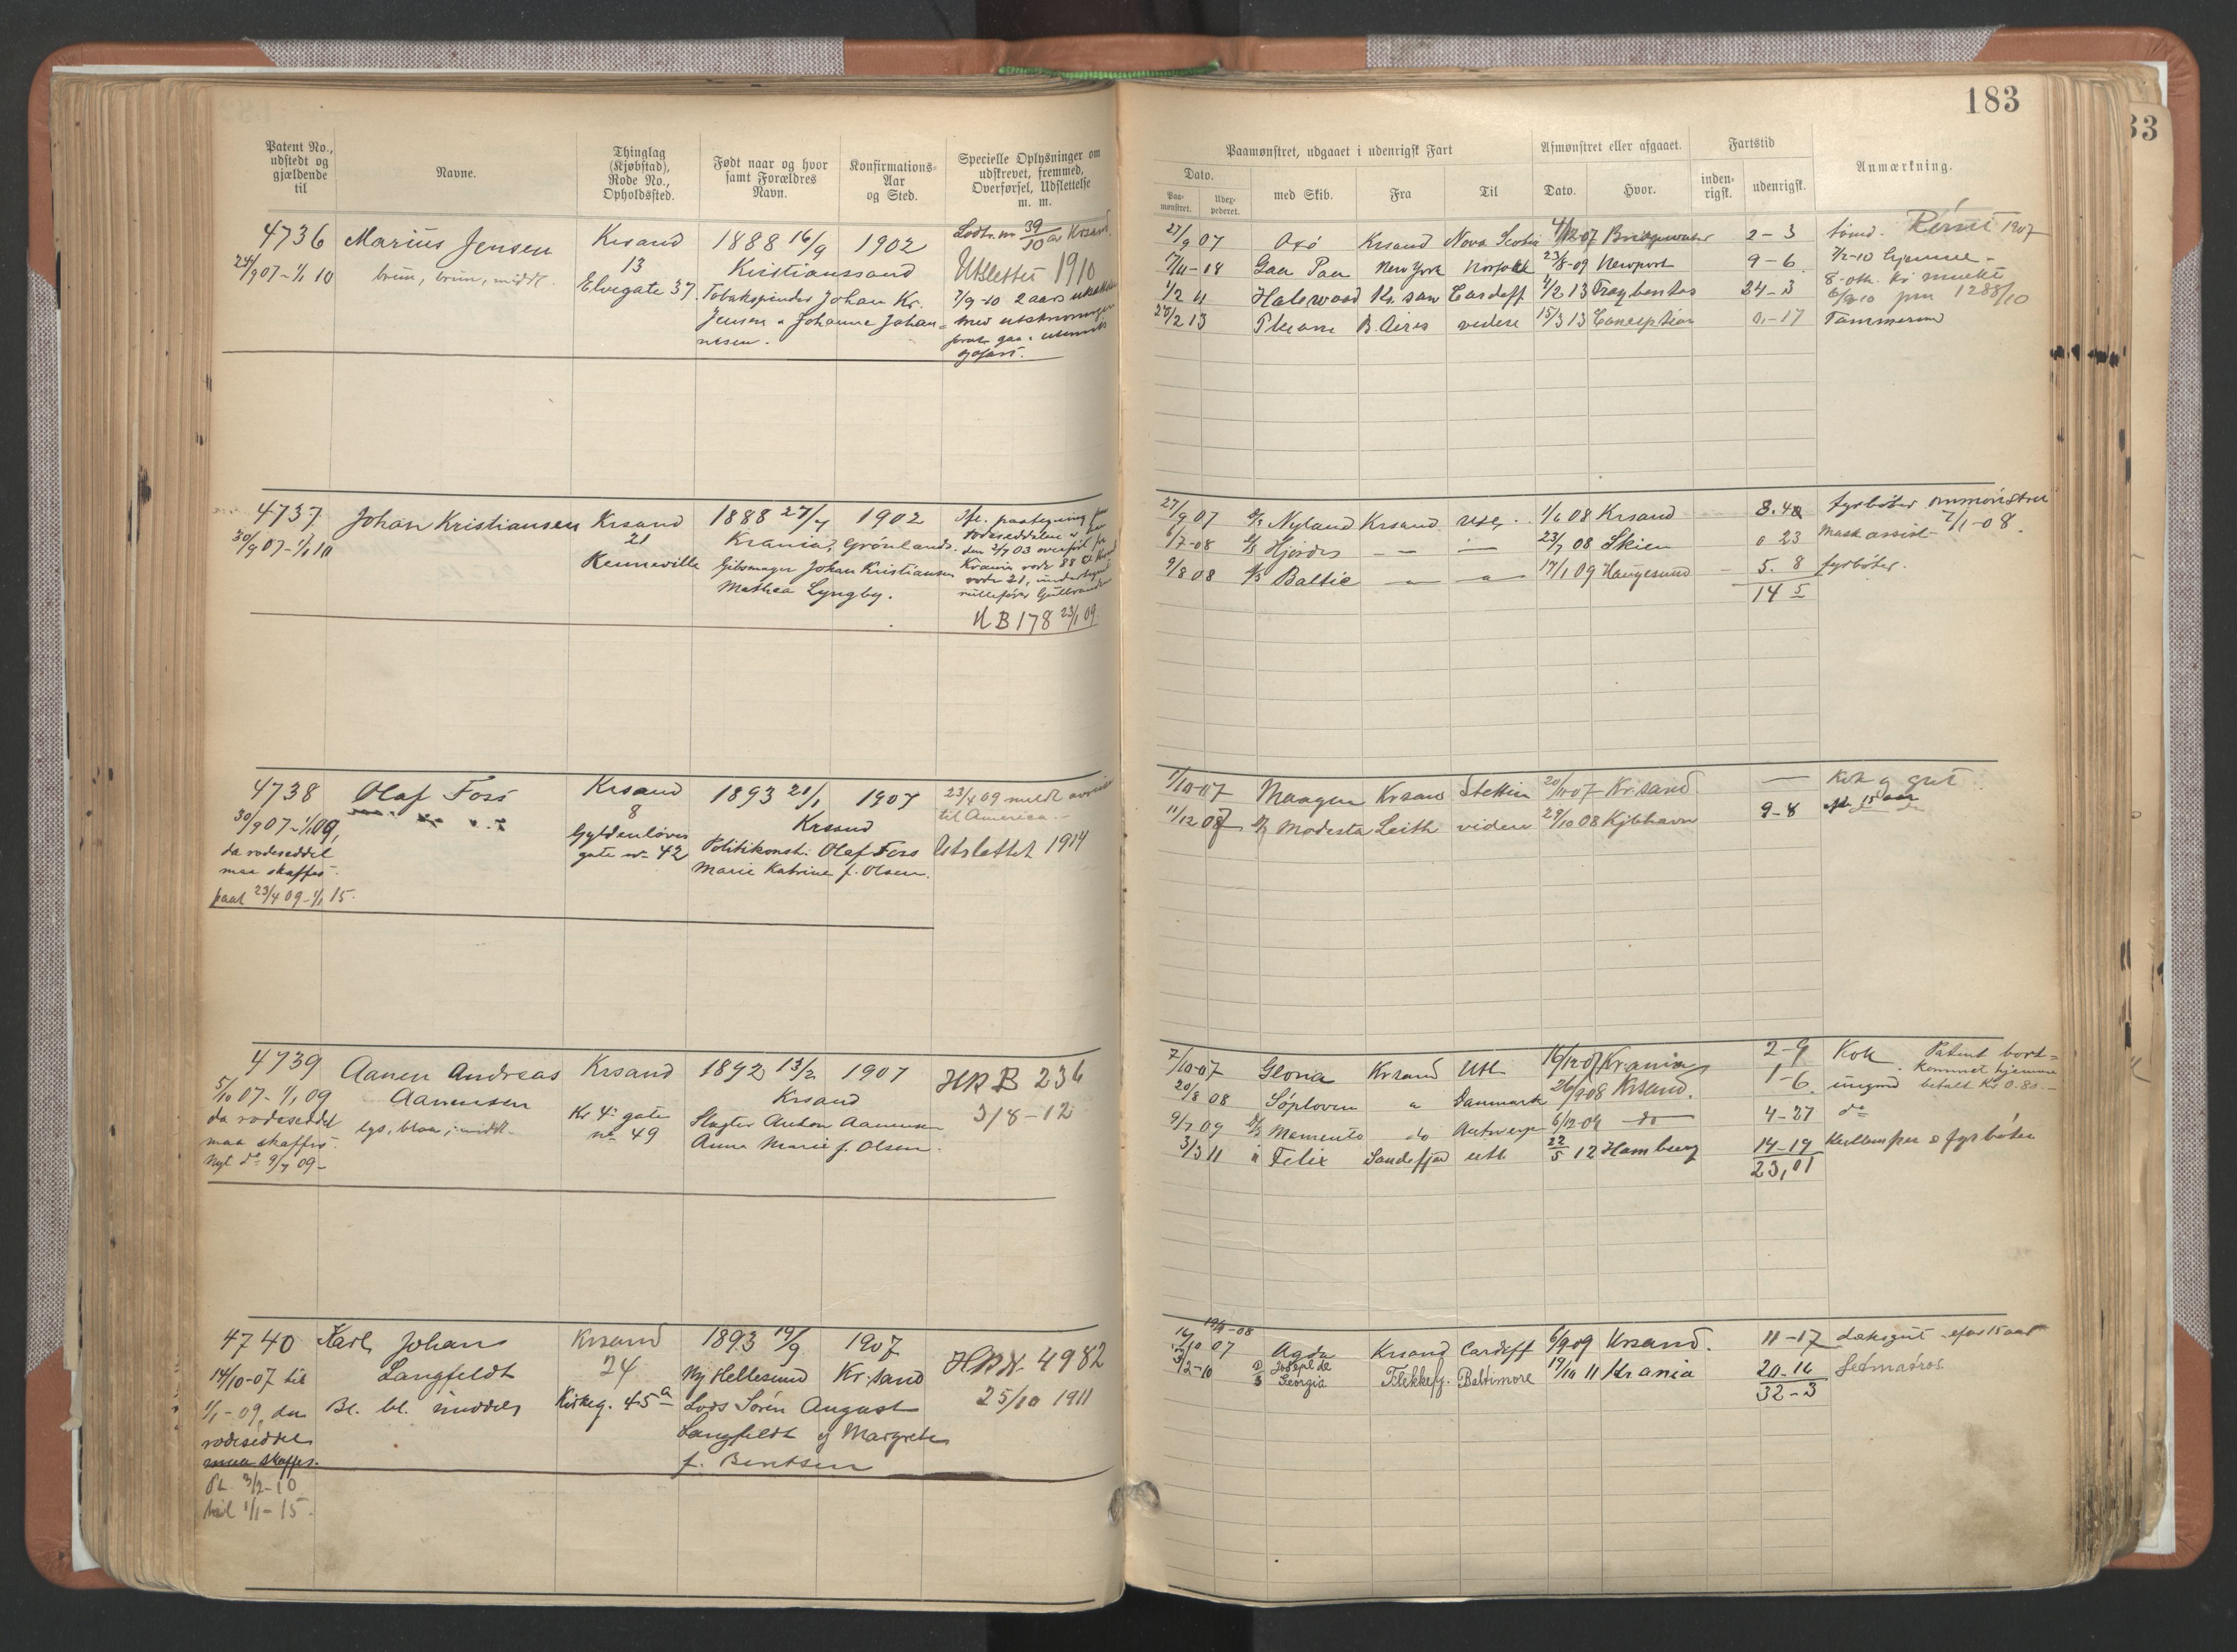 183
33
Patent No., udstedt og gjældende til
Navne.
Thinglag (Kjøbstad), Rode No., Opholdssted.
Født naar og hvor samt Forældres Navn.
Konfirmations-Aar og Sted.
Specielle Oplysninger om udskrevet, fremmed, Overførsel, Udslettelse m. m.
Paamønstret, udgaaet i udenrigsk Fart
Afmønstret eller afgaaet.
Fartstid
Anmærkning.
Dato.
Paa-mønstret.
Udex-pederet.
med Skib.
Fra
Til
Dato.
Hvor.
inden-rigsk.
udenrigsk.
4736
24/9 07 - 1/1 10
Marius Jensen
brun, brun, middl.
Krsand
13
Elvegate 37.
1888 16/9 1902
Kristianssand
Tobakspinder Johan Kr.
Jensen & Johanne Johan=
nesen.
Lodtr. nr 39/10 av Krsand.
Utslettet 1910
7/9-10 2 aars
med utskrivningen
27/9 07 Oxø Krsand Nova Scotia 07 Bridgewater 2-3
Gaa Paa New York Norfolk 23/8-09 Newport 9-6
1/2 11 Halewood Kr.san Cardeff 4/2 13 Fray bentos 24-3
20/2 13 B. Aires videre 15/3 13 Conception 0-17
1907
7/2-10 hjemme -
1288/10
Tømmermd
4737
30/9 07 - 1/1 10
Johan Kristiansen
Krsand
21
Kenneville
1888 27/7 1902
Krania, Grønlands.
Gibsmager Johan Kristiansen
Mathea Lyngby.
Ifl. paategning
rodeseddelen
den 2/7 03 overført fra
Krania rode 88 til Krsand
rode 21,
rullefører
HB 178 23/1 09.
27/9 07 D/S Nyland Krsand Utl. 1/6 08 Krsand 8.4
6/7-08 D/S Hjørdis — — 23/7 08 Skien 0 23
9/8 08 D/S Baltic — " — 17/1 09 Haugesund 5. 8
14 5
fyrbøter ommønstret
7/1-08.
Mask assist
fyrbøter.
4738
30/9 07 - 1/1 09,
da rodeseddel
maa skaffes.
paat 23/4 09 - 1/1 15.
Olaf Foss
Krsand
8
Gyldenløves
gate no 42
1893 21/1 1907
Krsand
Politikonst. Olaf Foss
Marie Katrine f. Olsen.
23/4 09 meldt avreist
til America.-
Utslettet 1914
1/10-07 Maagen Krsand Stettin 20/10 07 Kr.sand —
11/12 07 D/S Modesta Leith videre 29/10 08 Kjøbhavn 9-8
Kok og gut
eft. 15 aar
4739
5/10 07 - 1/1 09
da rodeseddel
maa skaffes.
Nyt do 9/7 09 -
Aanen Andreas
Aanensen
lys, blaa, middl.
Krsand
Kr 4. gate
no 49
1892 13/2 1907
Krsand
Slagter Anton Aanensen
Anna Marie f. Olsen.
HR B 236
3/8-12
7/10-07 Gloria Krsand Utl 16/12-07 Krania 2-9 Kok. Patent bort=
kommet hjemme
20/8 08 Søploven " Danmark 26/9-08 Krsand. 1-6 ungmd betalt Kr 0.80.-
9/7 09 D/S Memento do Antwerp 6/12-09 do 4-27 do
3/3 11 " Felix Sandefjor utl 22/5 12 Hamburg 14-19 Kullemper & fyrbøter
23,01
4740
14/10-07 til
1/1-09, da
rodeseddel
maa skaffes.
Pt. 3/2-10
til 1/1-15.
Karl Johan
Langfeldt
Bl. bl. middels
Krsand
24
Kirkeg. 45a
1893 19/9 1907
Ny Hellesund Kr.sand
Lods Søren August
Langfeldt og Margrete
f. Bentsen
HR N. 4982
25/10 1911
16/10 07 Agda Krsand Cardiff 6/9 09 Krsand. 11-17 dæksgut efter 15 aar
3/2-10 D/S Joseph de Georgia Flekkefj. Baltimore 19/10 11 Krania 20-16 Letmatros
32-3